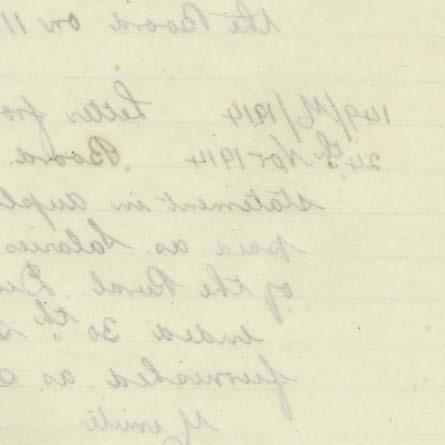 the Board on 11
149/M/1914 Letter fro
24th Nov 1914 Board.
statement in dupl
paid as Salaries
of the Rural
ended 30th S
furnished as
Minute